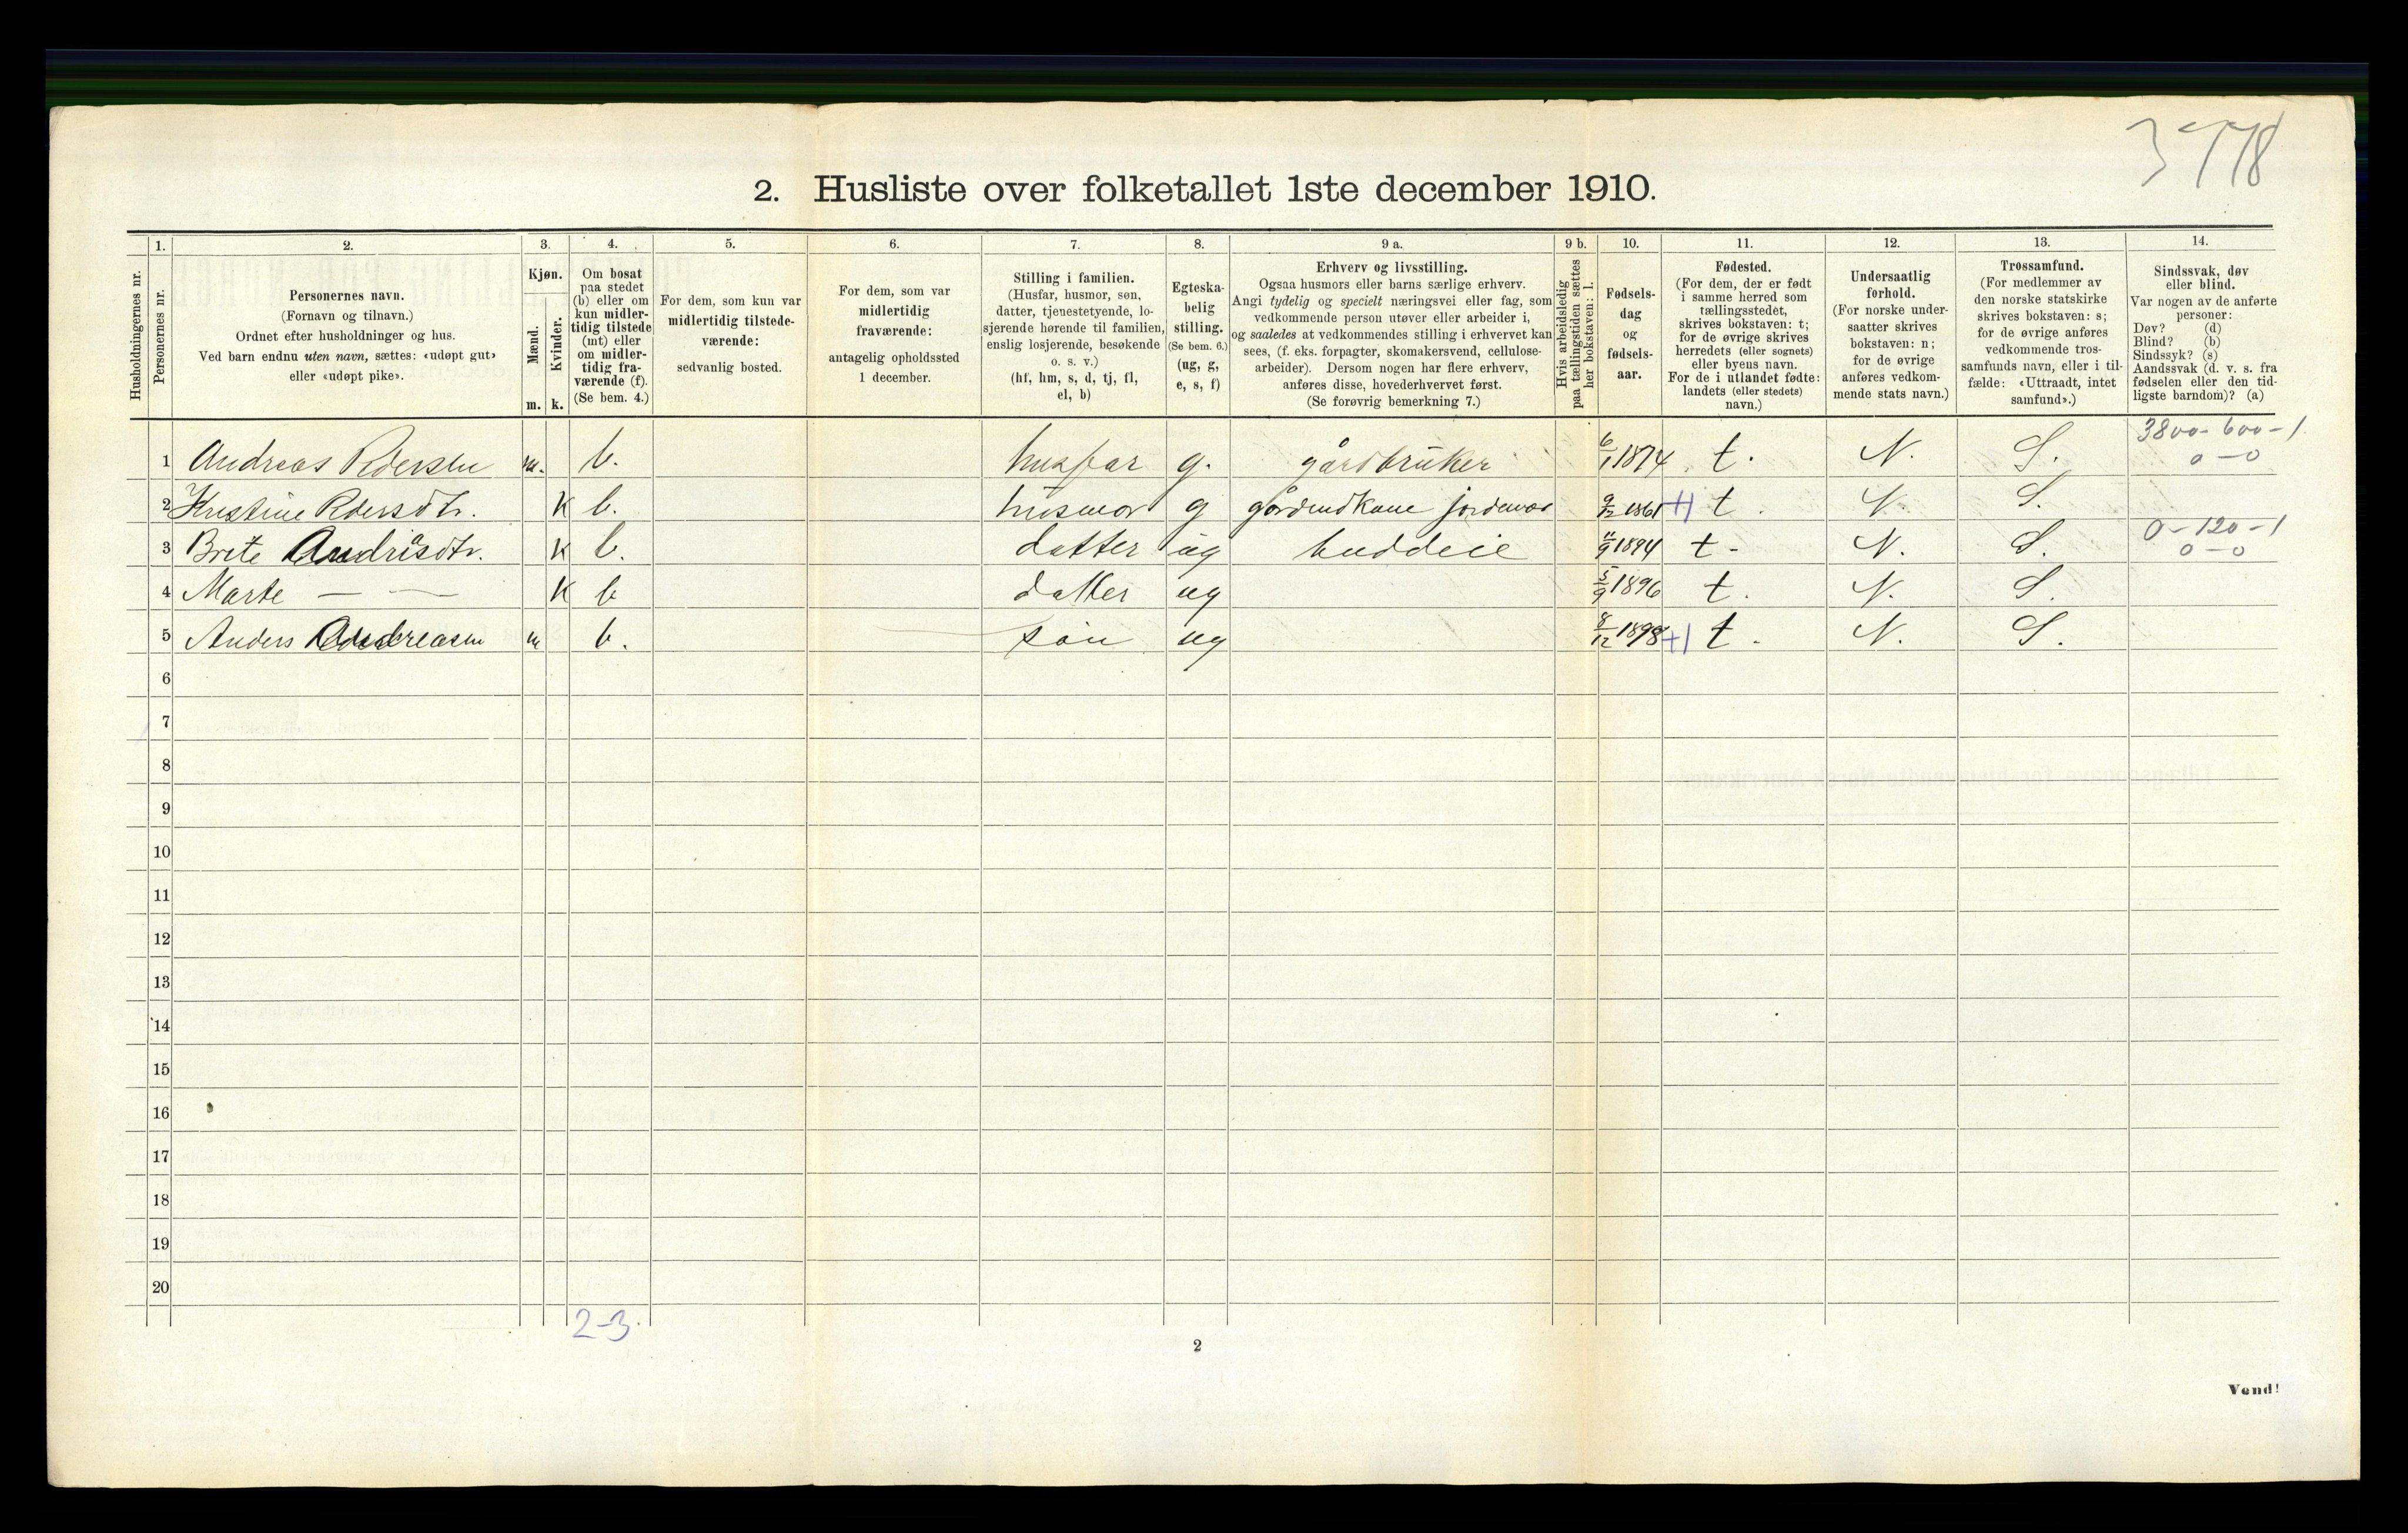 3778
2. Husliste over folketallet 1ste december 1910.
Husholdningernes nr.
1.
Personernes nr.
2.
Personernes navn.
(Fornavn og tilnavn.)
Ordnet efter husholdninger og hus.
Ved barn endnu uten navn, sættes: «udøpt gut»
eller «udøpt pike».
3.
Kjøn.
Mænd.
Kvinder.
m. k.
4.
Om bosat
paa stedet
(b) eller om
kun midler-
tidig tilstede
(mt) eller
om midler-
tidig fra-
værende (f).
(Se bem. 4.)
5.
For dem, som kun var
midlertidig tilstede-
værende:
sedvanlig bosted.
6.
For dem, som var
midlertidig
fraværende:
antagelig opholdssted
1 december.
7.
Stilling i familien.
(Husfar, husmor, søn,
datter, tjenestetyende, lo-
sjerende hørende til familien,
enslig losjerende, besøkende
o. s. v.)
(hf, hm, s, d, tj, fl,
el, b)
8.
Egteska-
belig
stilling.
(Se bem. 6.)
(ug, g,
e, s, f)
9 a.
Erhverv og livsstilling.
Ogsaa husmors eller barns særlige erhverv.
Angi tydelig og specielt næringsvei eller fag, som
vedkommende person utøver eller arbeider i,
og saaledes at vedkommendes stilling i erhvervet kan
sees, (f. eks. forpagter, skomakersvend, cellulose-
arbeider). Dersom nogen har flere erhverv,
anføres disse, hovederhvervet først.
(Se forøvrig bemerkning 7.)
9 b.
Hvis arbeidsledig
paa tællingstiden sættes
her bokstaven: l.
10.
Fødsels-
dag
og
fødsels-
aar.
11.
Fødested.
(For dem, der er født
i samme herred som
tællingsstedet,
skrives bokstaven: t;
for de øvrige skrives
herredets (eller sognets)
eller byens navn.
For de i utlandet fødte:
landets (eller stedets)
navn.)
12.
Undersaatlig
forhold.
(For norske under-
saatter skrives
bokstaven: n;
for de øvrige
anføres vedkom-
mende stats navn.)
13.
Trossamfund.
(For medlemmer av
den norske statskirke
skrives bokstaven: s;
for de øvrige anføres
vedkommende tros-
samfunds navn, eller i til-
fælde: «Uttraadt, intet
samfund».)
14.
Sindssvak, døv
eller blind.
Var nogen av de anførte
personer:
Døv? (d)
Blind? (b)
Sindssyk? (s)
Aandssvak (d. v. s. fra
fødselen eller den tid-
ligste barndom)? (a)
1 Andreas Pedersen m. b. husfar g. gårdbruker 6/1 1874 t. N. S. 3800-600-1 0-0
2 Kristine Pedersdtr. k b. husmor g gårdmdkone jordmor 9/12 1861 +1 t. N. S.
3 Brite Andrisdtr. k b. datter ug buddeie 11/9 1894 t - N. S. 0-120-1 0-0
4 Marte — — k b datter ug 5/9 1896 t. N. S.
5 Anders Andreasen m b. søn ug 8/12 1898 +1 t. N. S.
6
7
8
9
10
11
12
13
14
15
16
17
18
19
20
2-3.
2
Vend!